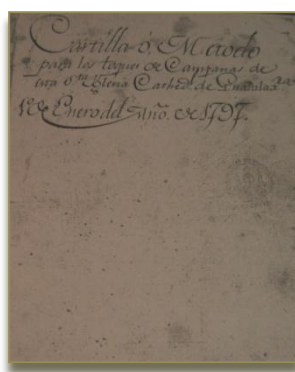 Cartilla ò Metodo
para los toques de Campanas de
esta S.ta Yglesia Cathed. de Guadalax.ra
Enero del Año. de 1797.